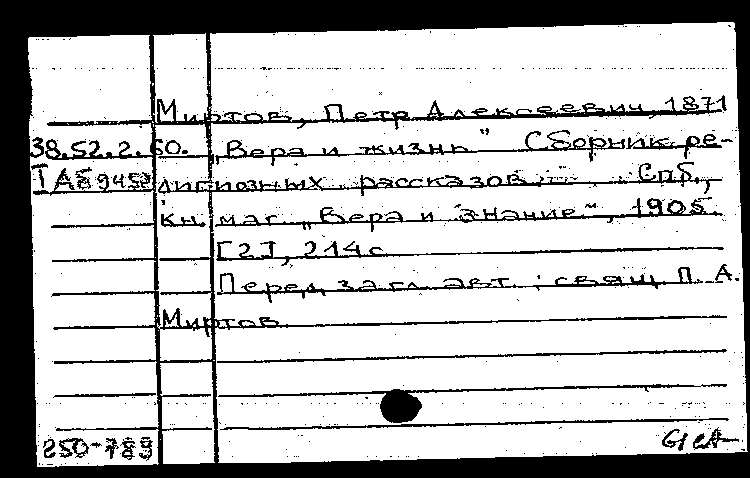 Миртов, Петр Алексеевич, 1871
38.52.2.60. „Вера и жизнь" Сборник ре-
лигиозных рассказов. Спб.,
кн. маг. „Вера и знание", 1905.
[2], 214 с
Перед загл. авт.: свящ. П. А.
Миртов
250-789